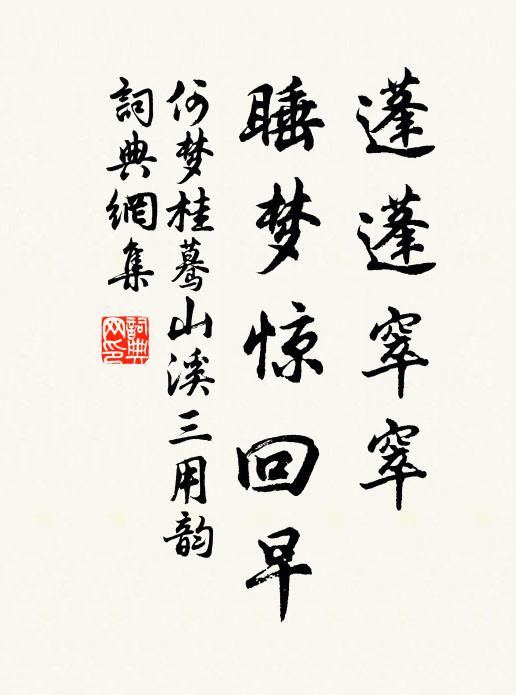 蓬蓬窣窣
睡梦惊回早
何梦桂蓦山溪三用韵
詞典網集
詞典網印